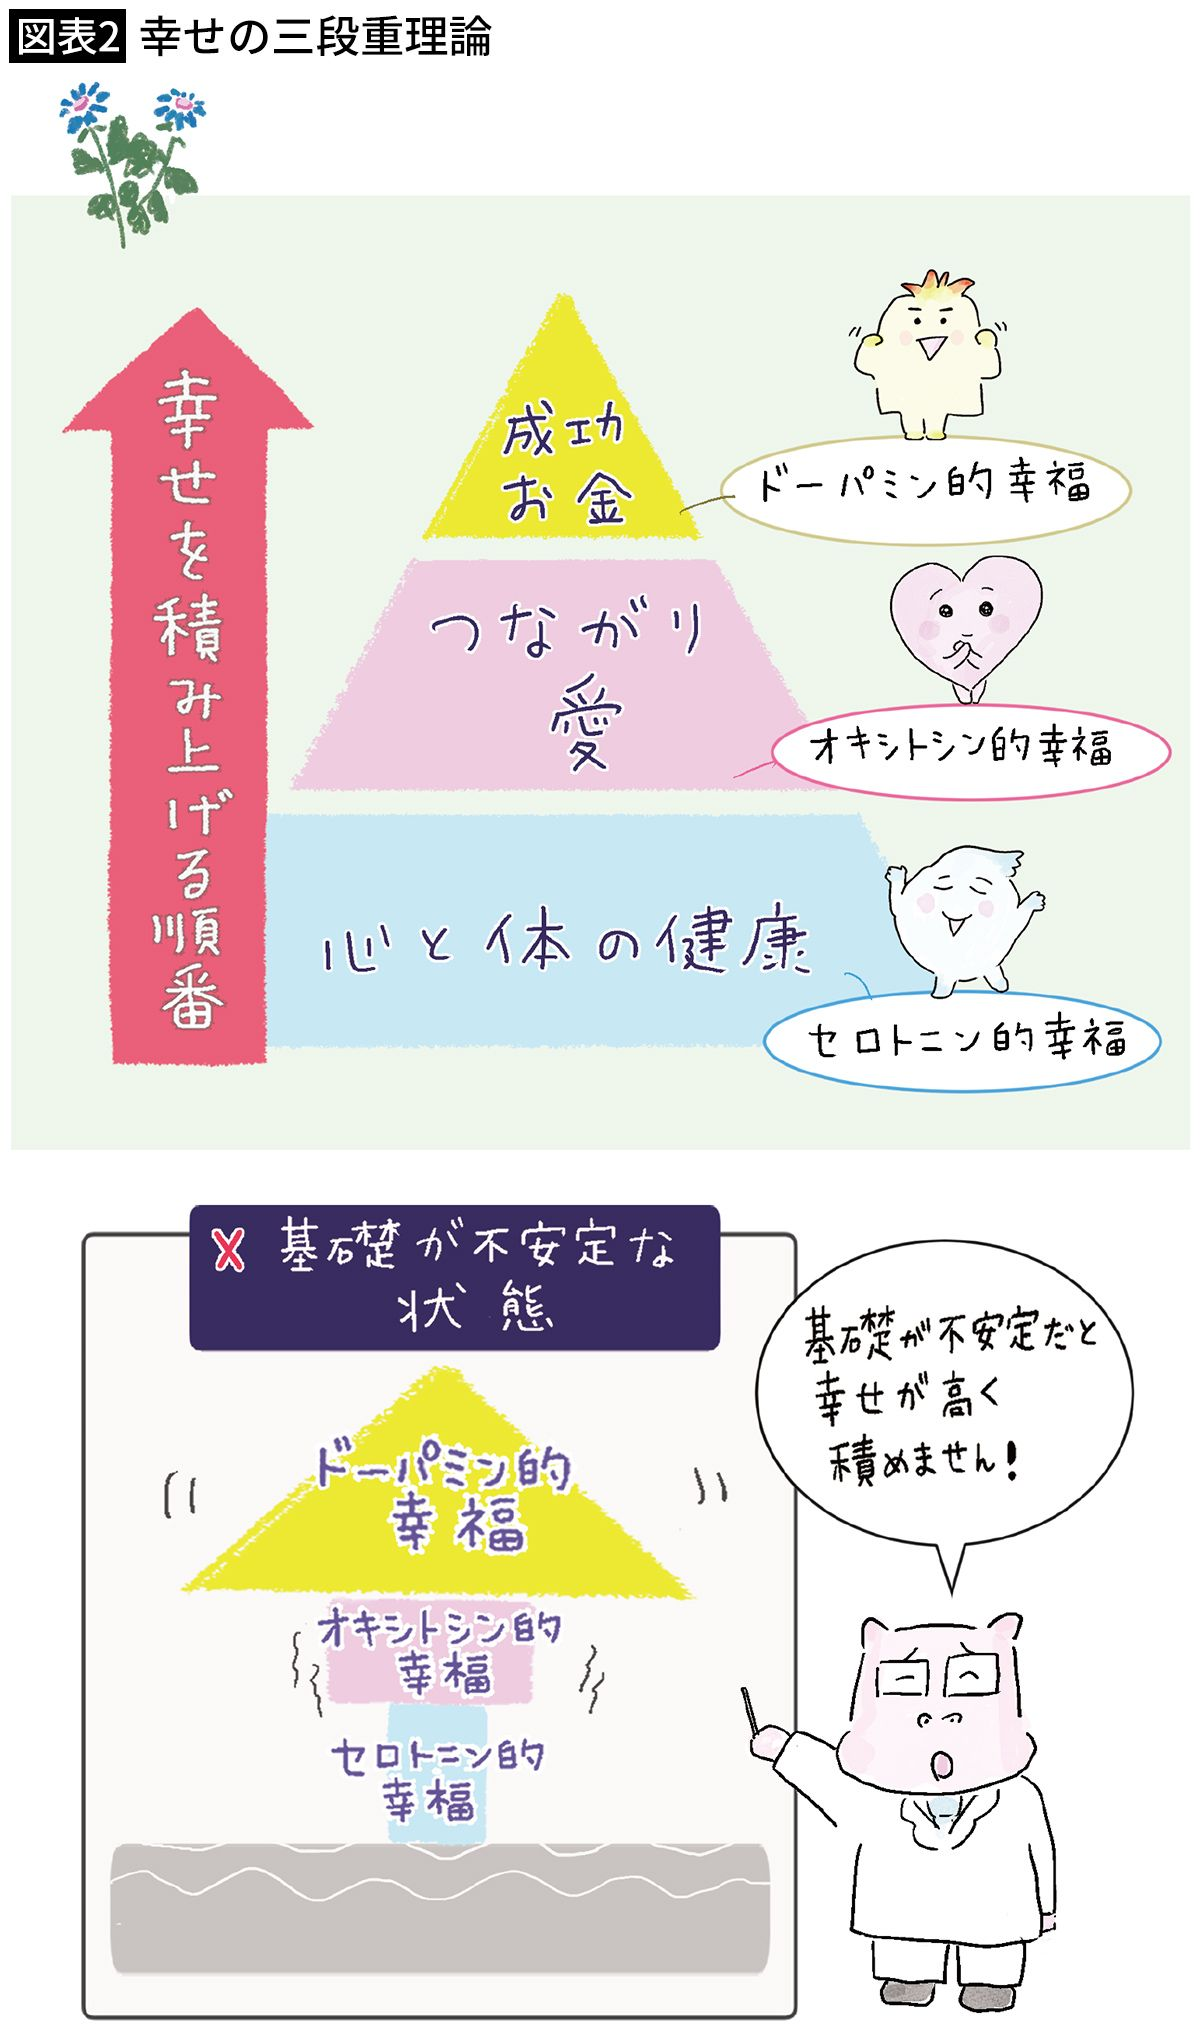 図表2 幸せの三段重理論
幸せを積み上げる順番
成功
お金
ドーパミン的幸福
つながり
愛
オキシトシン的幸福
心と体の健康
セロトニン的幸福
X 基礎が不安定な
状態
ドーパミン的
幸福
オキシトシン的
幸福
セロトニン的
幸福
基礎が不安定だと
幸せが高く
積めません!